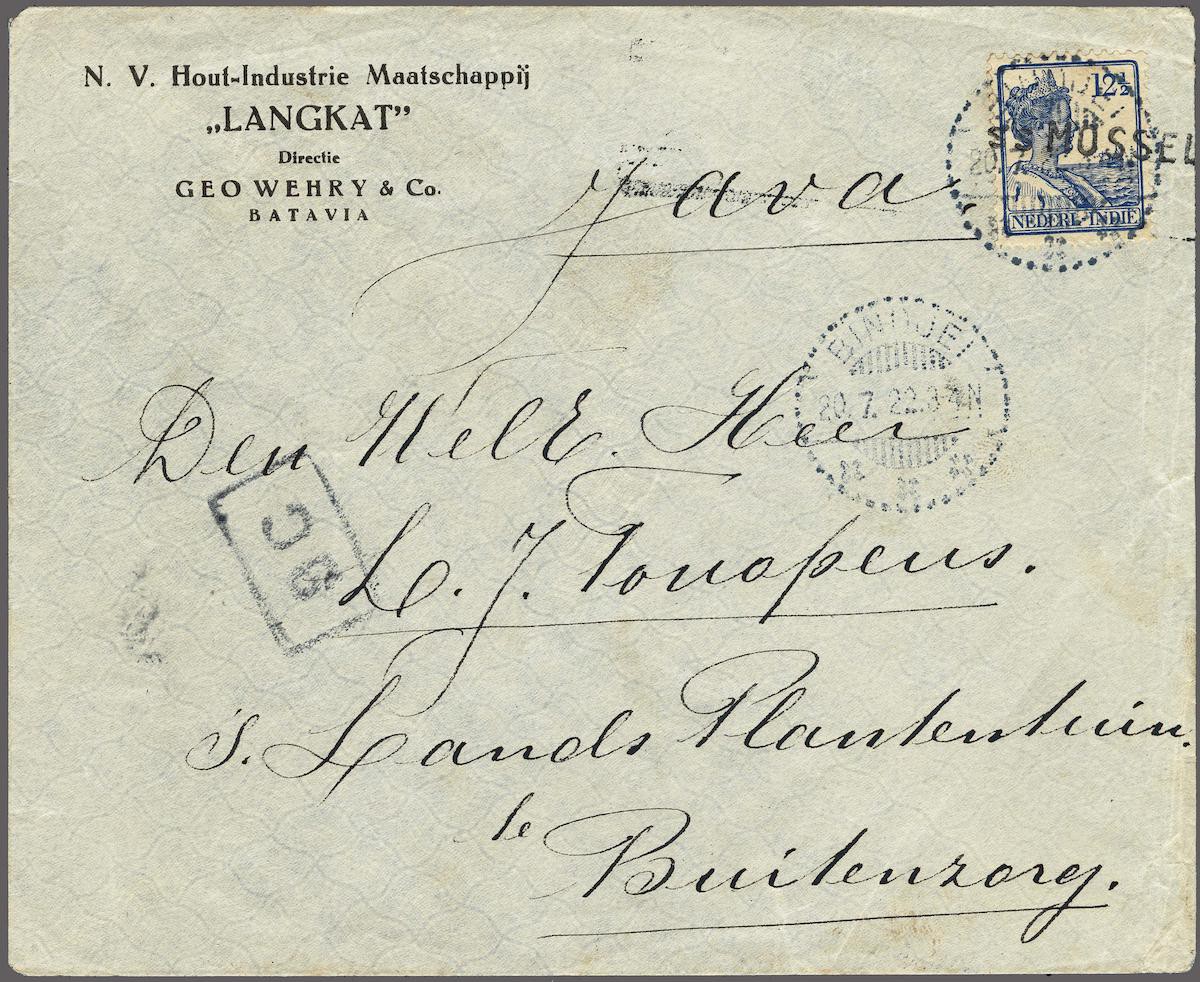 N. V. Hout-Industrie Maatschappij
„LANGKAT”
Directie
GEO WEHRY & Co.
BATAVIA
12½
SS MOSSEL
NEDERL-INDIE
Java
BINDJEI
20.7.22.3-4N
Den WelE. Heer
L. J. Touopeus.
's. Lands Plantentuin.
te
Buitenzorg.